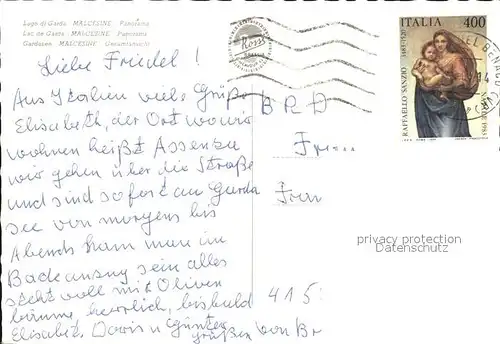 Lago di Garda MALCESINE Panorama
Lac de Garda MALCESINE Panorama
Gardasee MALCESINE Gesamtansicht
Liebe Friedel!
Aus Italien viele Grüße
Elisabeth, der Ort wo wir
wohnen heißt Assenza
wir gehen über die Straße
und sind sofort am Garda
see von morgens bis
Abends kann man im
Badeanzug sein alles
steht voll mit Oliven
bäume, herrlich, bis bald
Elisabet. Doris u Günter
grüßen von
BRD
Frau
415
ITALIA 400
RAFFAELLO SANZIO 1483-1520
Rossi
privacy protection
Datenschutz